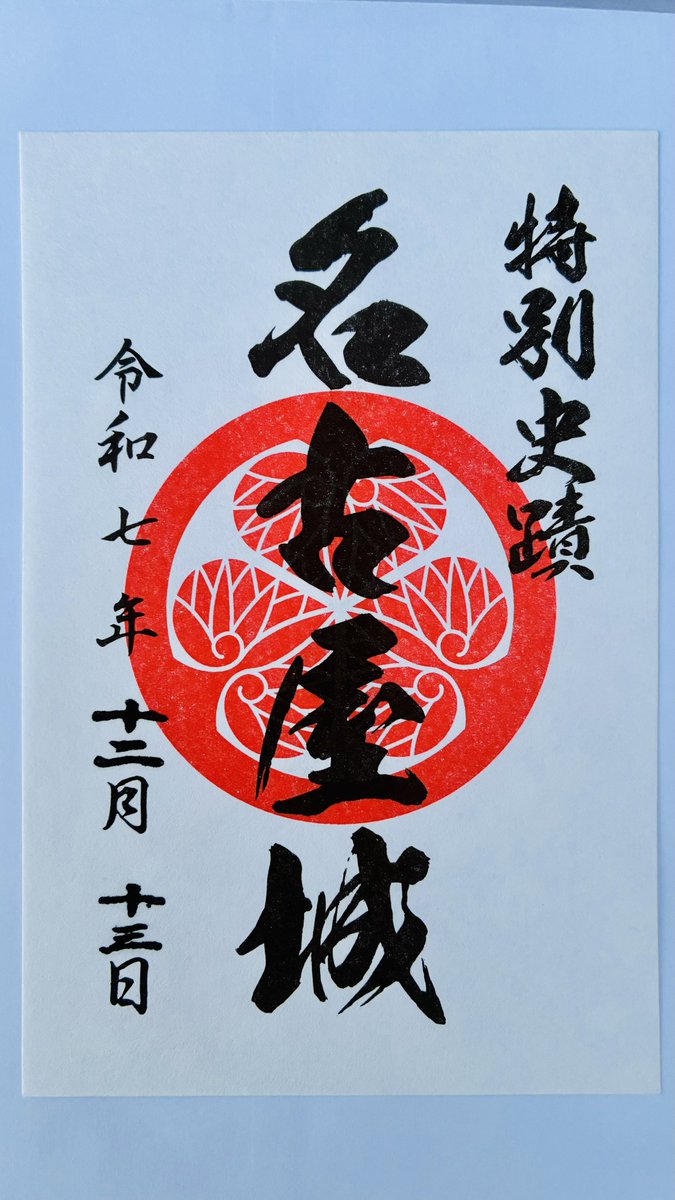 特別史蹟
名古屋城
令和七年十二月十三日